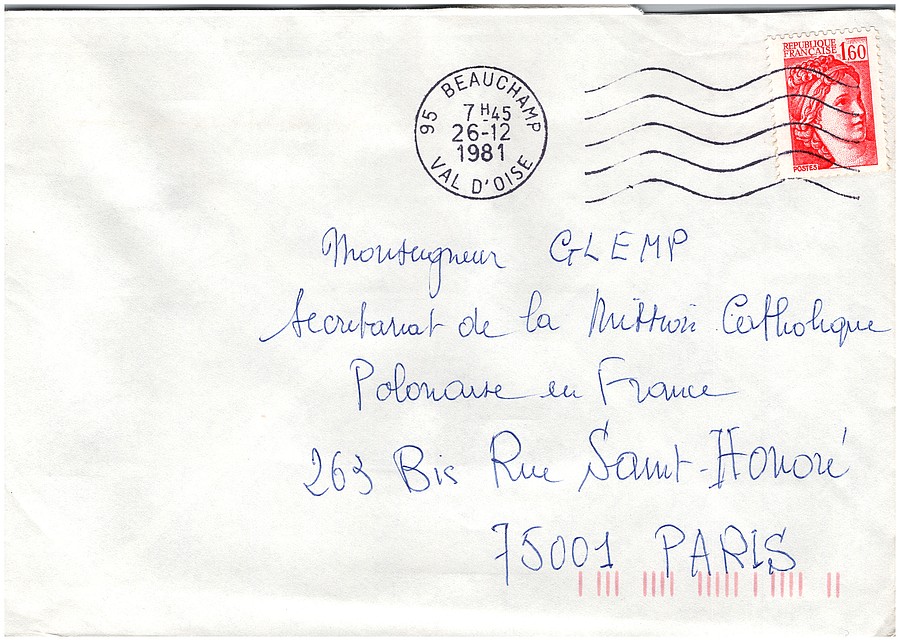 RÉPUBLIQUE
FRANÇAISE
1,60
POSTES
95 BEAUCHAMP
7 H 45
26-12
1981
VAL D'OISE
Monseigneur GLEMP
Secretariat de la Mission Catholique
Polonaise en France
263 Bis Rue Saint-Honoré
75001 PARIS